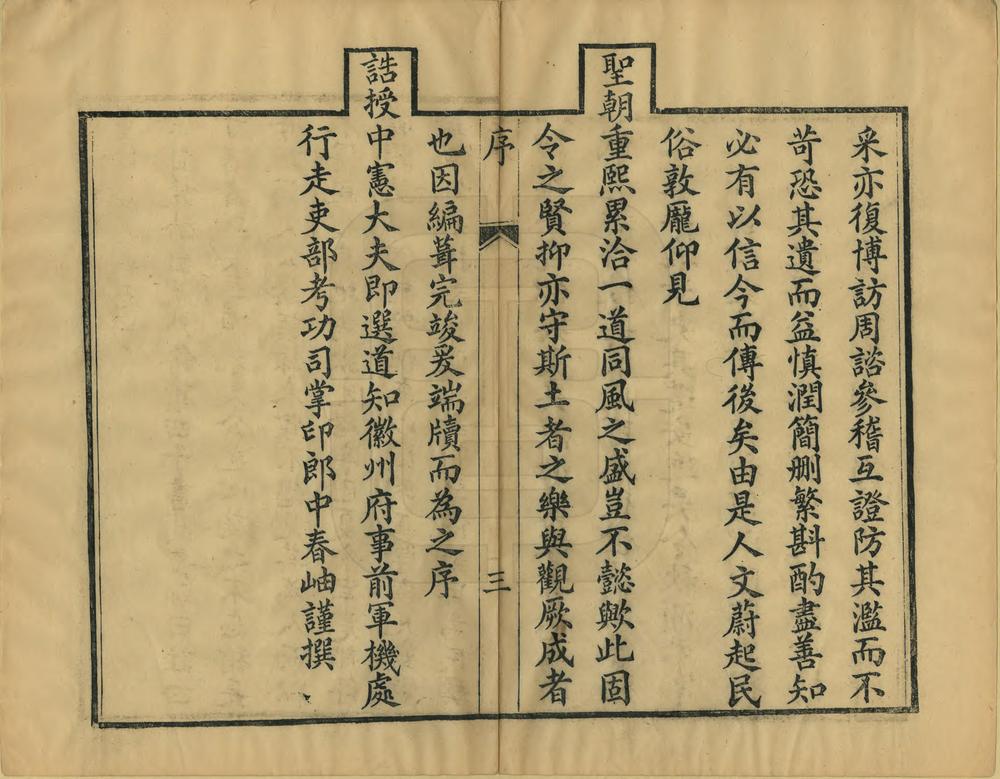 采亦復博訪周諮參稽互證防其濫而不
苛恐其遺而益慎潤簡刪繁斟酌盡善知
必有以信今而傳後矣由是人文蔚起民
俗敦龐仰見
聖朝重熙累洽一道同風之盛豈不懿歟此固
令之賢抑亦守斯土者之樂與觀厥成者
序
三
也因編葺完竣爰端牘而為之序
誥授中憲大夫即選道知徽州府事前軍機處
行走吏部考功司掌印郎中春岫謹撰